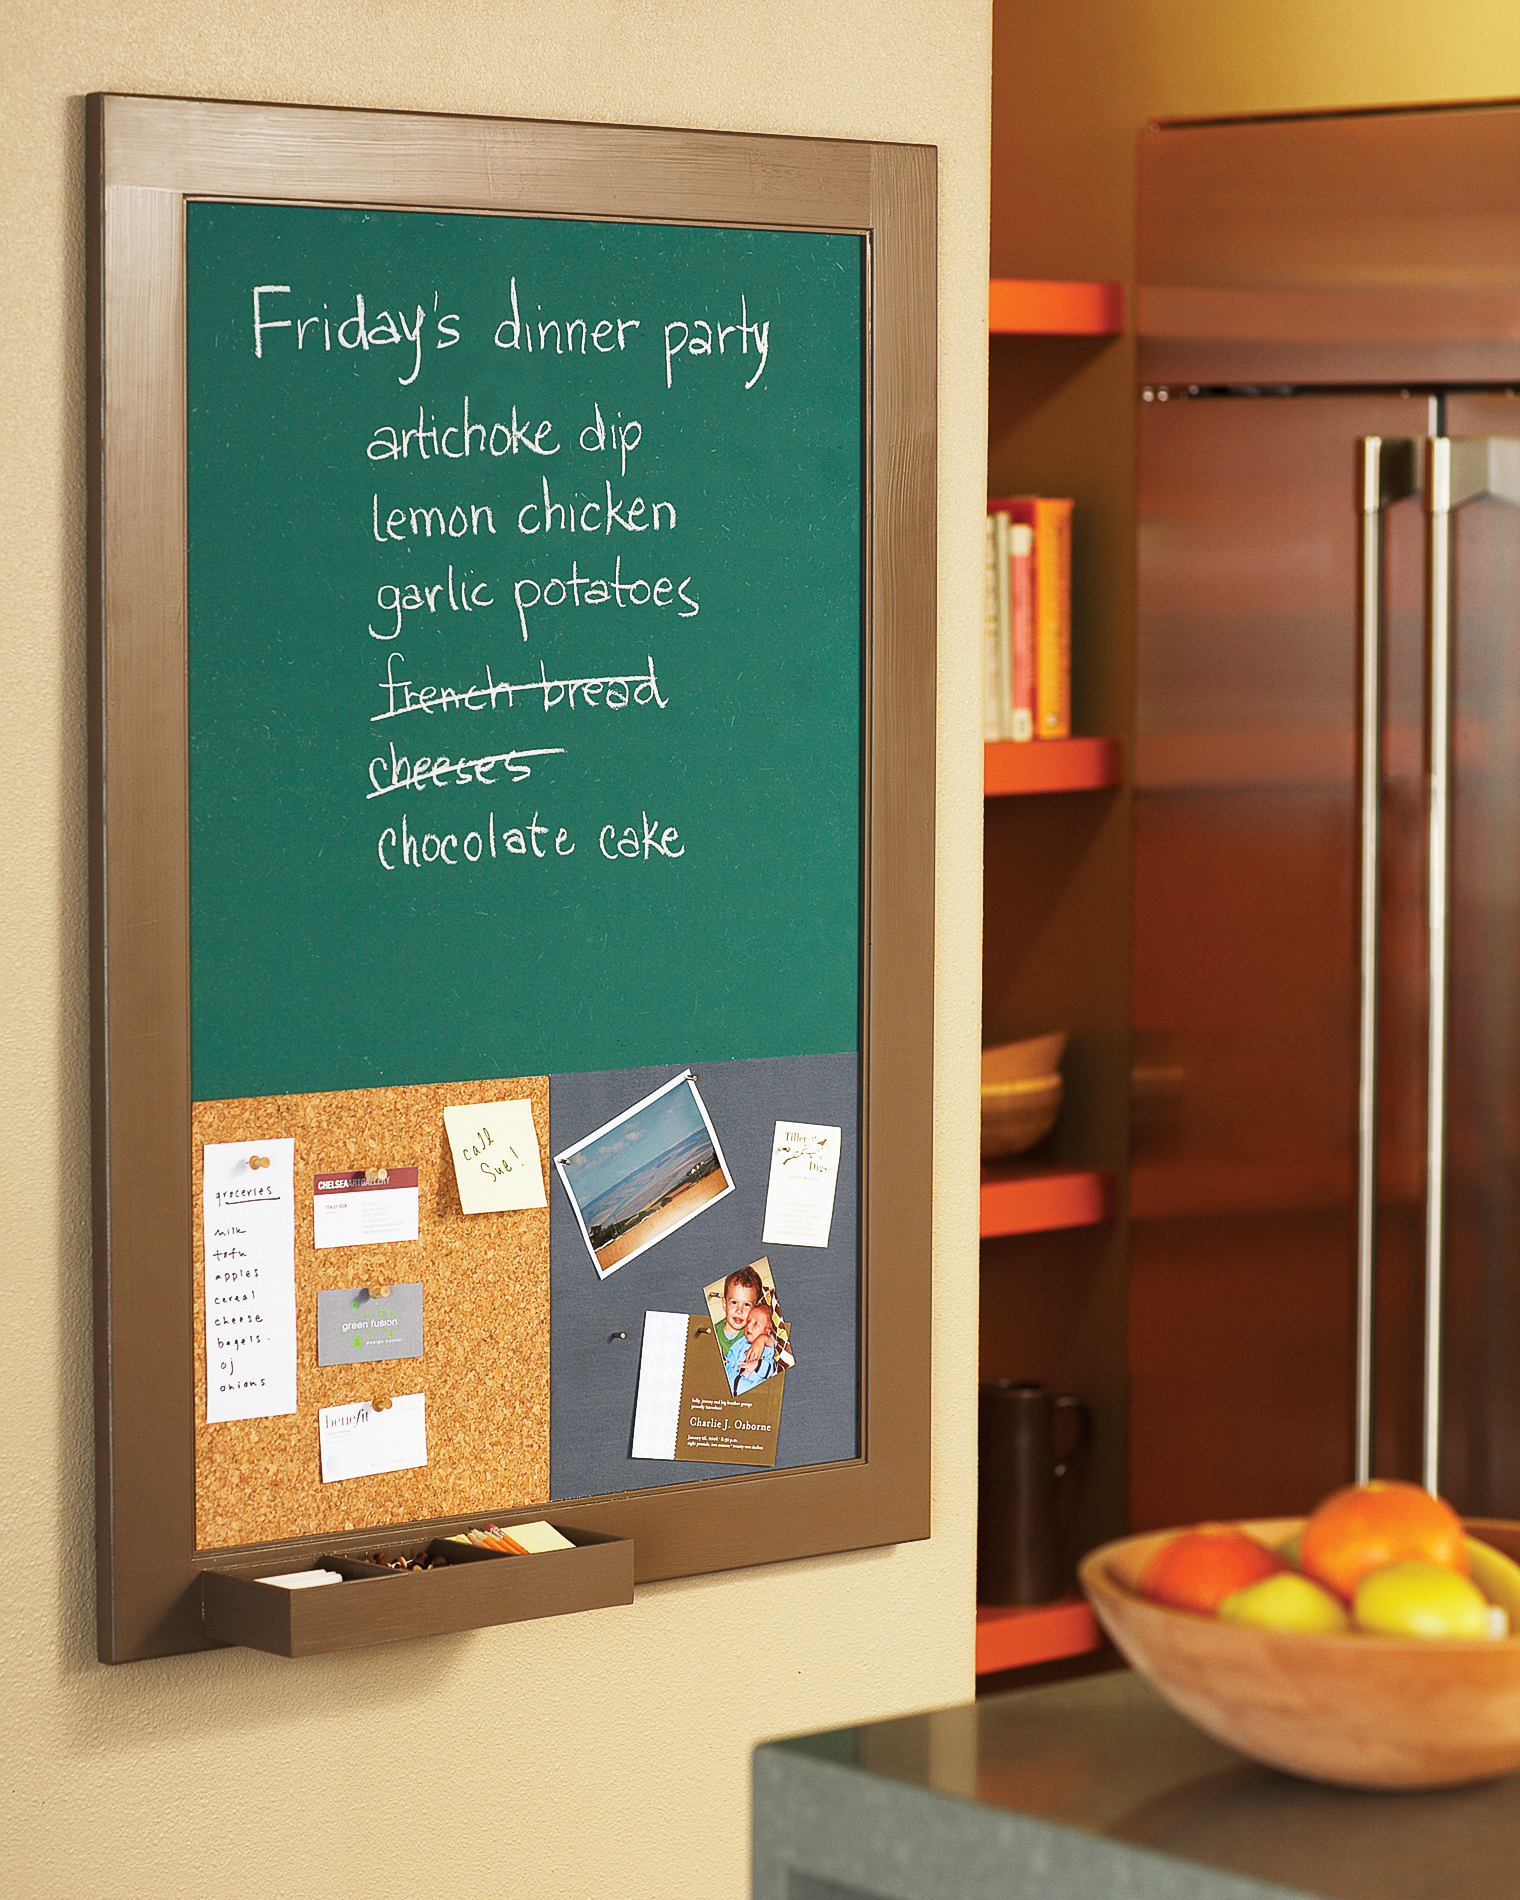 Friday's dinner party
artichoke dip
lemon chicken
garlic potatoes
french bread
cheeses
chocolate cake
groceries
milk
tofu
apples
cereal
cheese
bagels.
oj
onions
CHELSEAARTGALLERY
green fusion
design center
benefit
call
Sue!
Tiller
Digs
proudly introduce
Charlie J. Osborne